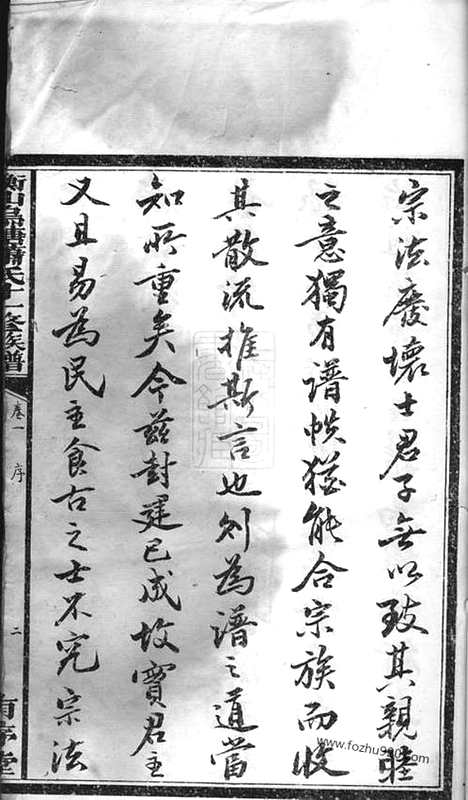 宗法廢壞士君子無以致其親睦
之意獨有譜帙猶能合宗族而收
其散流推斯言也則為譜之道當
知所重矣今茲封建已成故實君主
又且易為民主食古之士不究宗法
十一修族譜
卷一 序
二
www.fozhu900.com